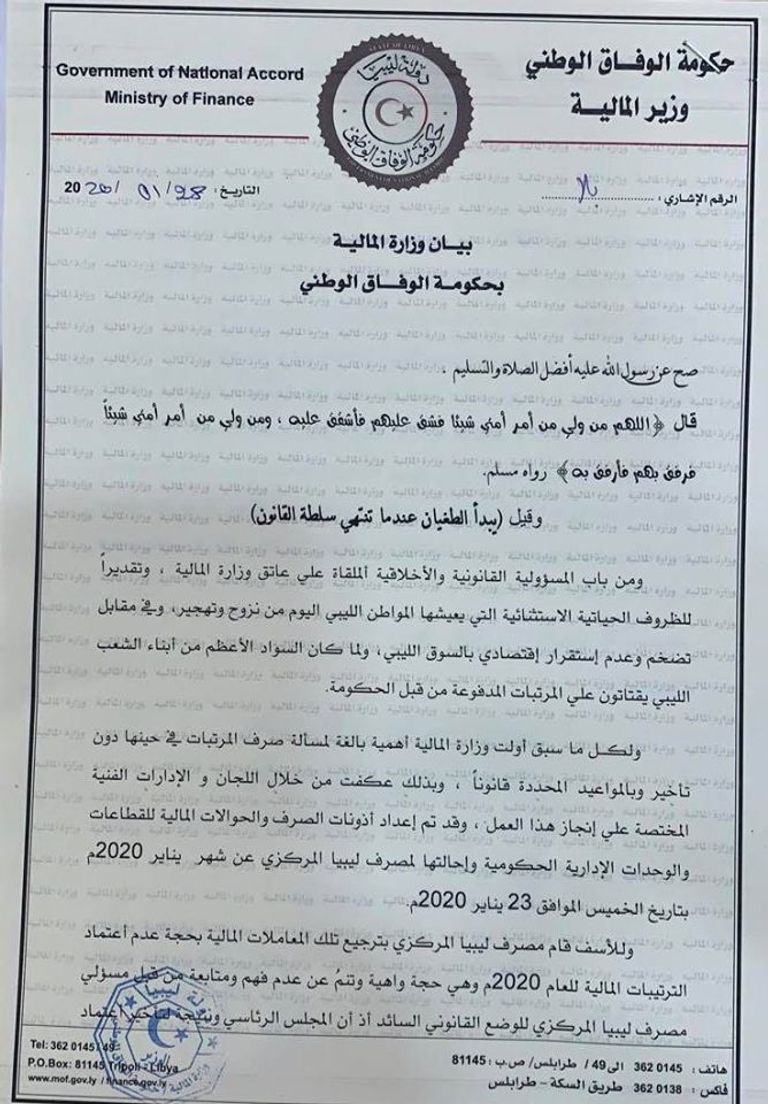 حكومة الوفاق الوطني
وزير المالية
Government of National Accord
Ministry of Finance
STATE OF LIBYA
دولة ليبيا
حكومة الوفاق الوطني
الرقم الإشاري :
التاريخ: 28/ 01/ 2020
بيان وزارة المالية
بحكومة الوفاق الوطني
صح عن رسول الله عليه أفضل الصلاة والتسليم .
قال ﴿ اللهم من ولي من أمر أمتي شيئا فشق عليهم فأشقق عليه ، ومن ولي من أمر أمتي شيئاً
فرفق بهم فأرفق به ﴾ رواه مسلم.
وقيل (يبدأ الطغيان عندما تنتهي سلطة القانون)
ومن باب المسؤولية القانونية والأخلاقية ألملقاة علي عاتق وزارة المالية ، وتقديراً
للظروف الحياتية الاستثنائية التي يعيشها المواطن الليبي اليوم من نزوح وتهجير، وفي مقابل
تضخم وعدم إستقرار إقتصادي بالسوق الليبي، ولما كان السواد الأعظم من أبناء الشعب
الليبي يقتاتون علي المرتبات المدفوعة من قبل الحكومة.
ولكل ما سبق أولت وزارة المالية أهمية بالغة لمسألة صرف المرتبات في حينها دون
تأخير وبالمواعيد المحددة قانوناً ، وبذلك عكفت من خلال اللجان و الإدارات الفنية
المختصة علي إنجاز هذا العمل ، وقد تم إعداد أذونات الصرف والحوالات المالية للقطاعات
والوحدات الإدارية الحكومية وإحالتها لمصرف ليبيا المركزي عن شهر يناير 2020م
بتاريخ الخميس الموافق 23 يناير 2020م.
وللأسف قام مصرف ليبيا المركزي بترجيع تلك المعاملات المالية بحجة عدم أعتماد
الترتيبات المالية للعام 2020م وهي حجة واهية وتنمُ عن عدم فهم ومتابعة من قبل مسؤلي
مصرف ليبيا المركزي للوضع القانوني السائد أذ أن المجلس الرئاسي ونتيجة لتأخير اعتماد
هاتف : 0145 362 الى 49 / طرابلس/ ص.ب : 81145
فاكس : 0138 362 طريق السكة - طرابلس
Tel: 362 0145 / 49
P.O.Box: 81145 Tripoli - Libya
www.mof.gov.ly / finance.gov.ly